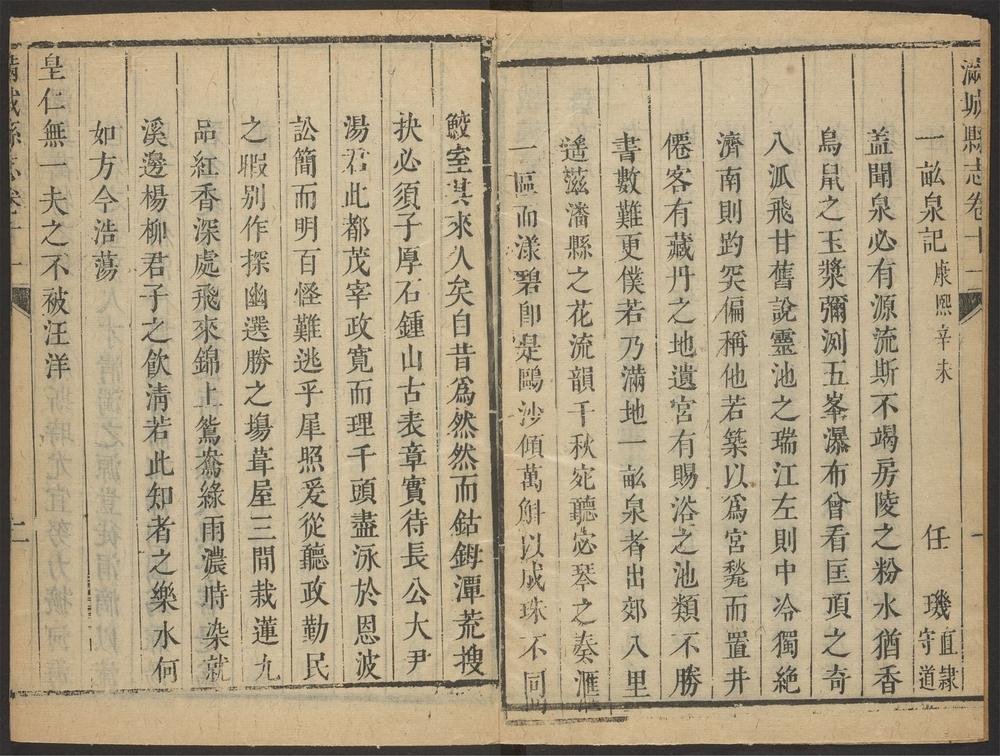 滿城縣志卷十一
一畝泉記 康熙辛未 任璣 直隸守道
蓋聞泉必有源流斯不竭房陵之粉水猶香
鳥鼠之玉漿彌洌五峯瀑布曾看匡頂之奇
八派飛甘舊說靈池之瑞江左則中冷獨絕
濟南則趵突偏稱他若築以爲宮甃而置井
僊客有藏丹之地遺宮有賜浴之池類不勝
書數難更僕若乃滿地一畝泉者出郊八里
遙滋潘縣之花流韻千秋宛聽宓琴之奏滙
一區而漾碧卽是鷗沙傾萬斛以成珠不同
鮫室其來久矣自昔爲然然而鈷鉧潭荒搜
抉必須子厚石鍾山古表章實待長公大尹
湯君此都茂宰政寛而理千頭盡泳於恩波
訟簡而明百怪難逃乎犀照爰從聽政勤民
之暇别作探幽選勝之塲葺屋三間栽蓮九
品紅香深處飛來錦上鴛鴦綠雨濃時染就
溪邊楊柳君子之飲淸若此知者之樂水何
如方今浩蕩
皇仁無一夫之不被汪洋
滿城縣志卷十一